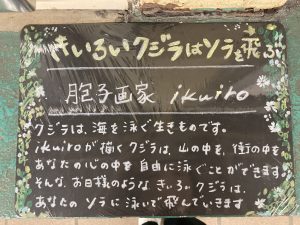 きいろいクジラはソラを飛ぶ
胞子画家 ikuiro
クジラは、海を泳ぐ生きものです。
ikuiroが描くクジラは、山の中を、街の中を
あなたの心の中を 自由に泳ぐことができます。
そんな、お日様のような きいろいクジラは、
あなたの ソラに 泳いで飛んでいきます